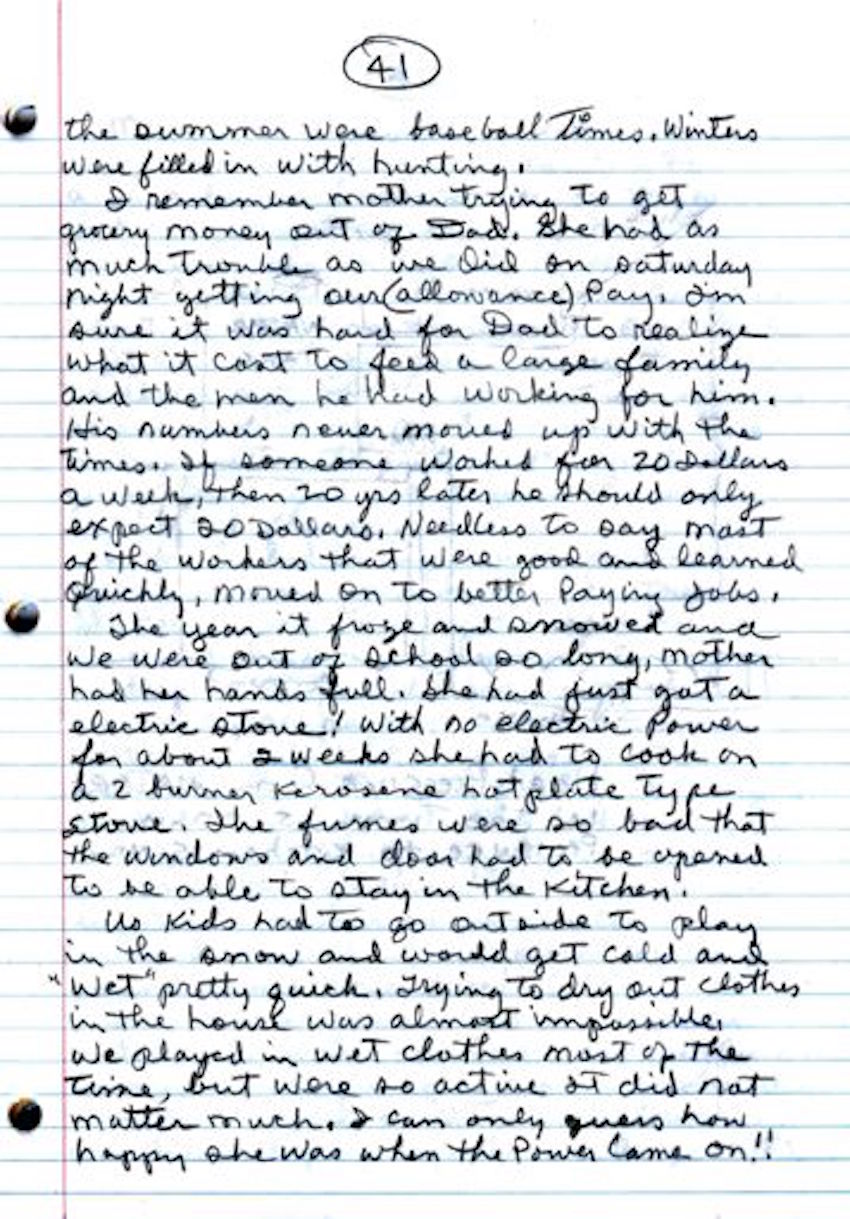 41
the summer were baseball Times. Winters
were filled in with hunting.
I remember mother trying to get
grocery money out of Dad. She had as
much trouble as we did on saturday
night getting our (allowance) Pay. I'm
sure it was hard for Dad to realize
what it cost to feed a large family
and the men he had working for him.
His numbers never moved up with the
times. If someone worked for 20 Dollars
a week, then 20 yrs later he should only
expect 20 Dollars. Needless to say most
of the workers that were good and learned
Quickly, moved on to better Paying Jobs.
The year it froze and snowed and
we were out of school so long, mother
had her hands full. She had just got a
electric stove! With no electric Power
for about 2 weeks she had to cook on
a 2 burner Kerosene hotplate type
stove. The fumes were so bad that
the windows and door had to be opened
to be able to stay in the Kitchen.
Us Kids had to go outside to play
in the snow and would get cold and
"Wet" pretty quick. Trying to dry out clothes
in the house was almost impossible.
we played in wet clothes most of the
time, but were so active it did not
matter much. I can only guess how
happy she was when the Power Came on!!